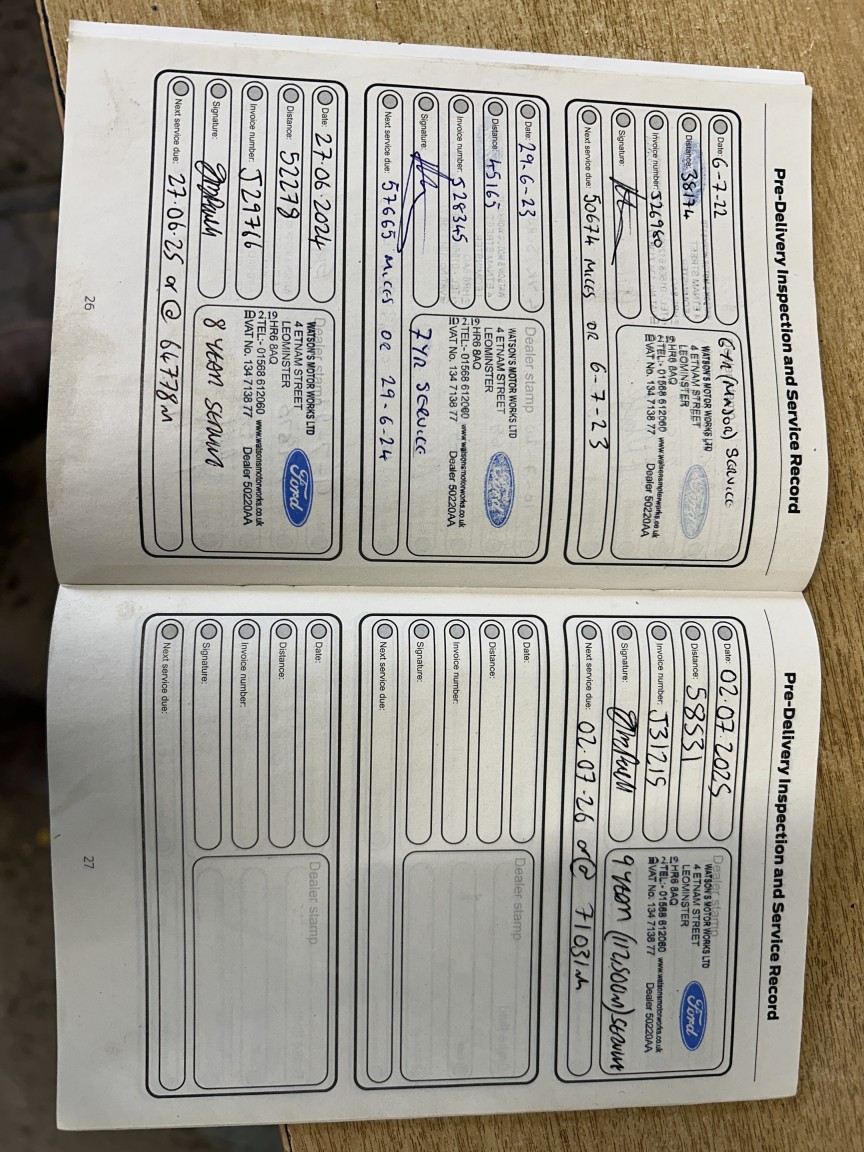 Pre-Delivery Inspection and Service Record
Date: 6-7-22
Distance: 38174
Invoice number: J26960
Signature:
Next service due: 50674 MILES OR 6-7-23
6YR (MAJOR) SERVICE
WATSON'S MOTOR WORKS LTD
4 ETNAM STREET
LEOMINSTER
HR6 8AQ
TEL:- 01568 612060 www.watsonsmotorworks.co.uk
VAT No. 134 7138 77 Dealer 50220AA
Ford
Date: 29.6-23
Distance: 45165
Invoice number: J28345
Signature:
Next service due: 57665 MILES OR 29-6-24
Dealer stamp
WATSON'S MOTOR WORKS LTD
4 ETNAM STREET
LEOMINSTER
HR6 8AQ
TEL:- 01568 612060 www.watsonsmotorworks.co.uk
VAT No. 134 7138 77 Dealer 50220AA
Ford
7YR SERVICE
Date: 27.06.2024
Distance: 52278
Invoice number: J29716
Signature:
Next service due: 27.06.25 or @ 64778M
Dealer stamp
WATSON'S MOTOR WORKS LTD
4 ETNAM STREET
LEOMINSTER
HR6 8AQ
TEL:- 01568 612060 www.watsonsmotorworks.co.uk
VAT No. 134 7138 77 Dealer 50220AA
Ford
8 YEAR SERVICE
26
Pre-Delivery Inspection and Service Record
Date: 02.07.2025
Distance: 58531
Invoice number: J31215
Signature:
Next service due: 02.07.26 or @ 71031M
Dealer stamp
WATSON'S MOTOR WORKS LTD
4 ETNAM STREET
LEOMINSTER
HR6 8AQ
TEL:- 01568 612060 www.watsonsmotorworks.co.uk
VAT No. 134 7138 77 Dealer 50220AA
Ford
9 YEAR (112500M) SERVICE
Date:
Distance:
Invoice number:
Signature:
Next service due:
Dealer stamp
Date:
Distance:
Invoice number:
Signature:
Next service due:
Dealer stamp
27